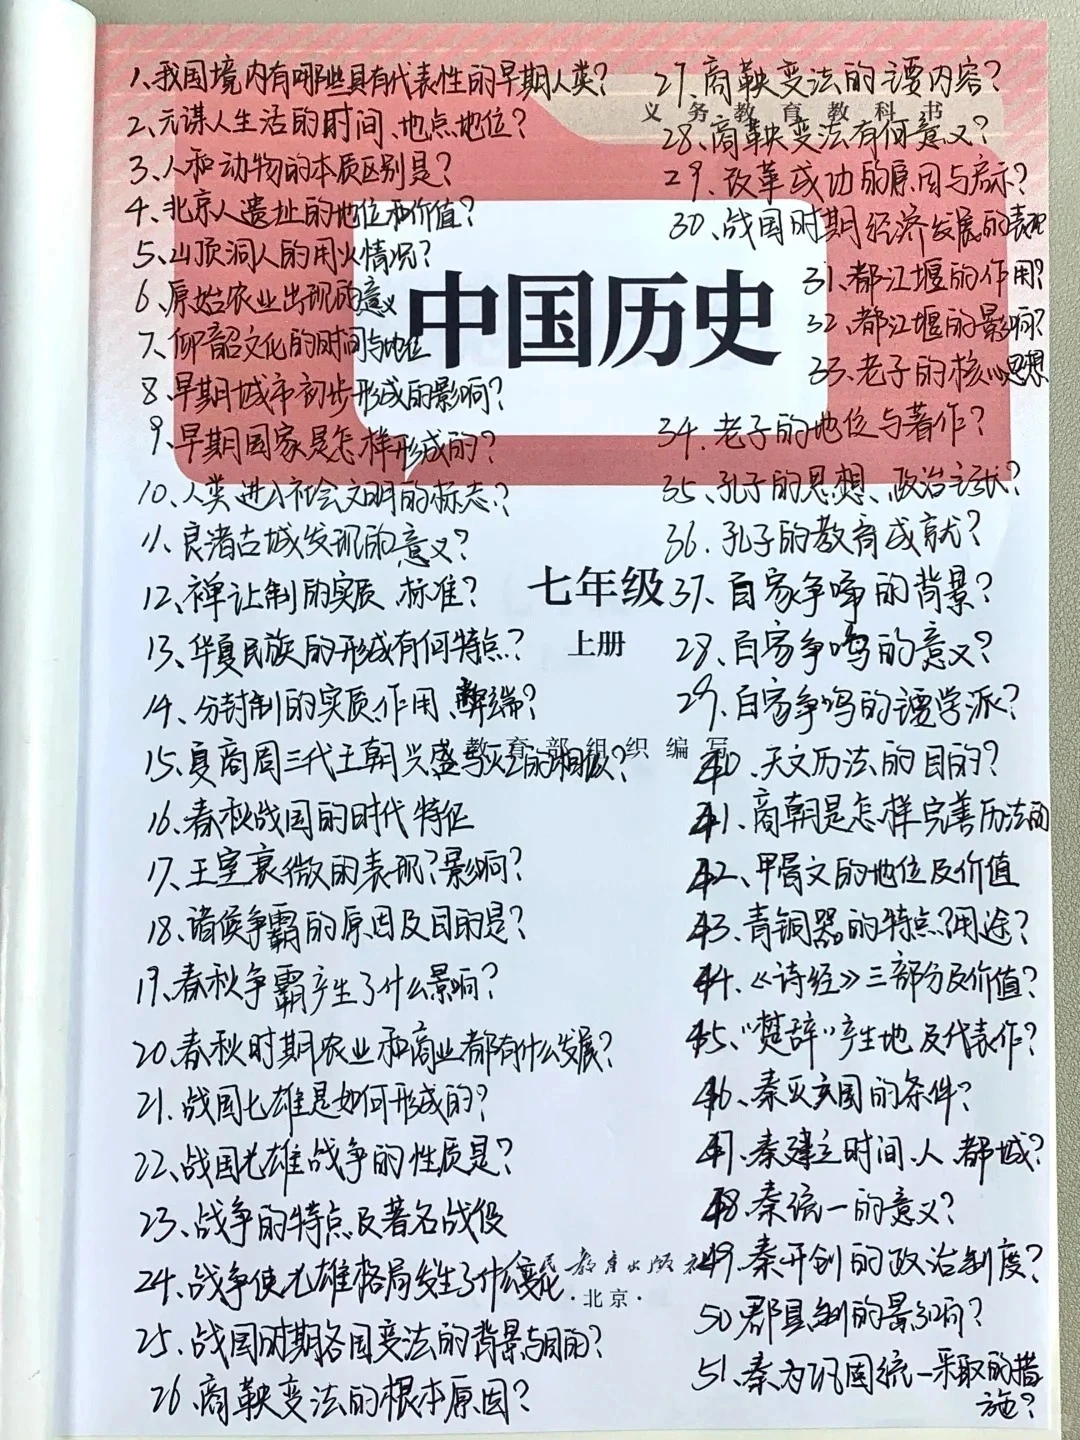 1、我国境内有哪些具有代表性的早期人类?
2、元谋人生活的时间、地点、地位?
3、人和动物的本质区别是?
4、北京人遗址的地位和价值?
5、山顶洞人的用火情况?
6、原始农业出现的意义
7、仰韶文化的时间与地位
8、早期城市初步形成的影响?
9、早期国家是怎样形成的?
10、人类进入社会文明的标志?
11、良渚古城发现的意义?
12、禅让制的实质、标准?
13、华夏民族的形成有何特点?
14、分封制的实质、作用、弊端?
15、夏商周三代王朝兴盛与灭亡的相似?
16、春秋战国的时代特征
17、王室衰微的表现?影响?
18、诸侯争霸的原因及目的是?
19、春秋争霸产生了什么影响?
20、春秋时期农业和商业都有什么发展?
21、战国七雄是如何形成的?
22、战国七雄战争的性质是?
23、战争的特点及著名战役
24、战争使七雄格局发生了什么变化
25、战国时期各国变法的背景与目的?
26、商鞅变法的根本原因?
27、商鞅变法的主要内容?
义务教育教科书
28、商鞅变法有何意义?
29、改革成功的原因与启示?
30、战国时期经济发展的表现
31、都江堰的作用?
32、都江堰的影响?
33、老子的核心思想
中国历史
34、老子的地位与著作?
35、孔子的思想、政治主张?
36、孔子的教育成就?
七年级
上册
37、百家争鸣的背景?
28、百家争鸣的意义?
29、百家争鸣的主要学派?
教育部组织编写
40、天文历法的目的?
41、商朝是怎样完善历法的
42、甲骨文的地位及价值
43、青铜器的特点?用途?
44、《诗经》三部分及价值?
45、“楚辞”产生地及代表作?
46、秦灭六国的条件?
47、秦建立时间、人、都城?
48、秦统一的意义?
人民教育出版社
·北京·
49、秦开创的政治制度?
50、郡县制的影响?
51、秦为巩固统一采取的措
施?